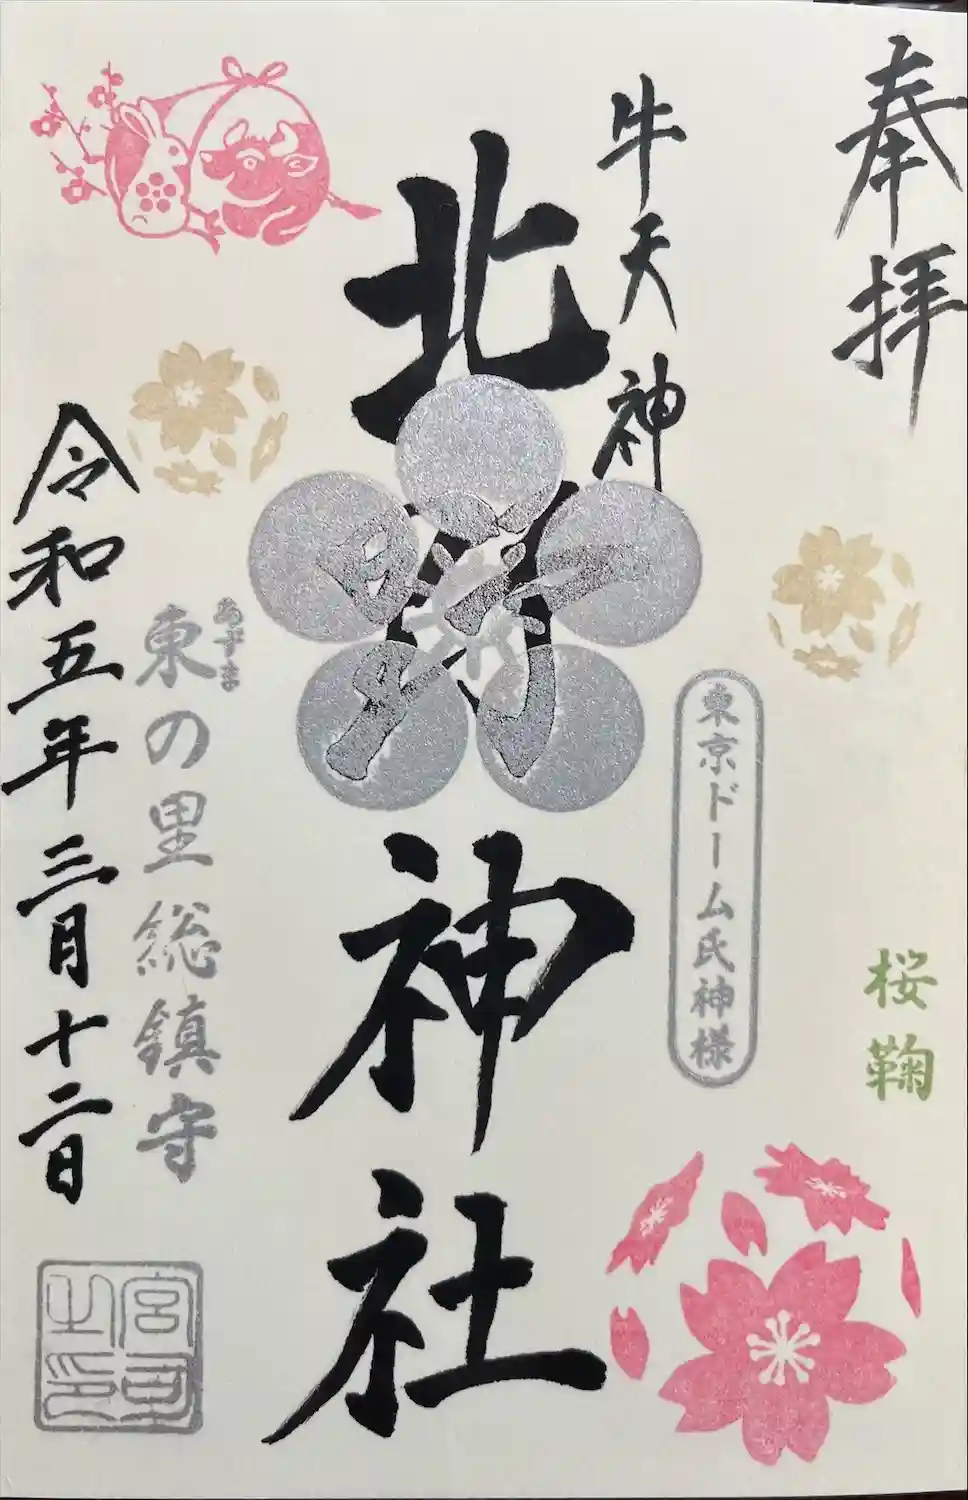 奉拝
桜鞠
東京ドーム氏神様
牛天神
北野神社
あずま
東の里総鎮守
令和五年三月十二日
宮司之印